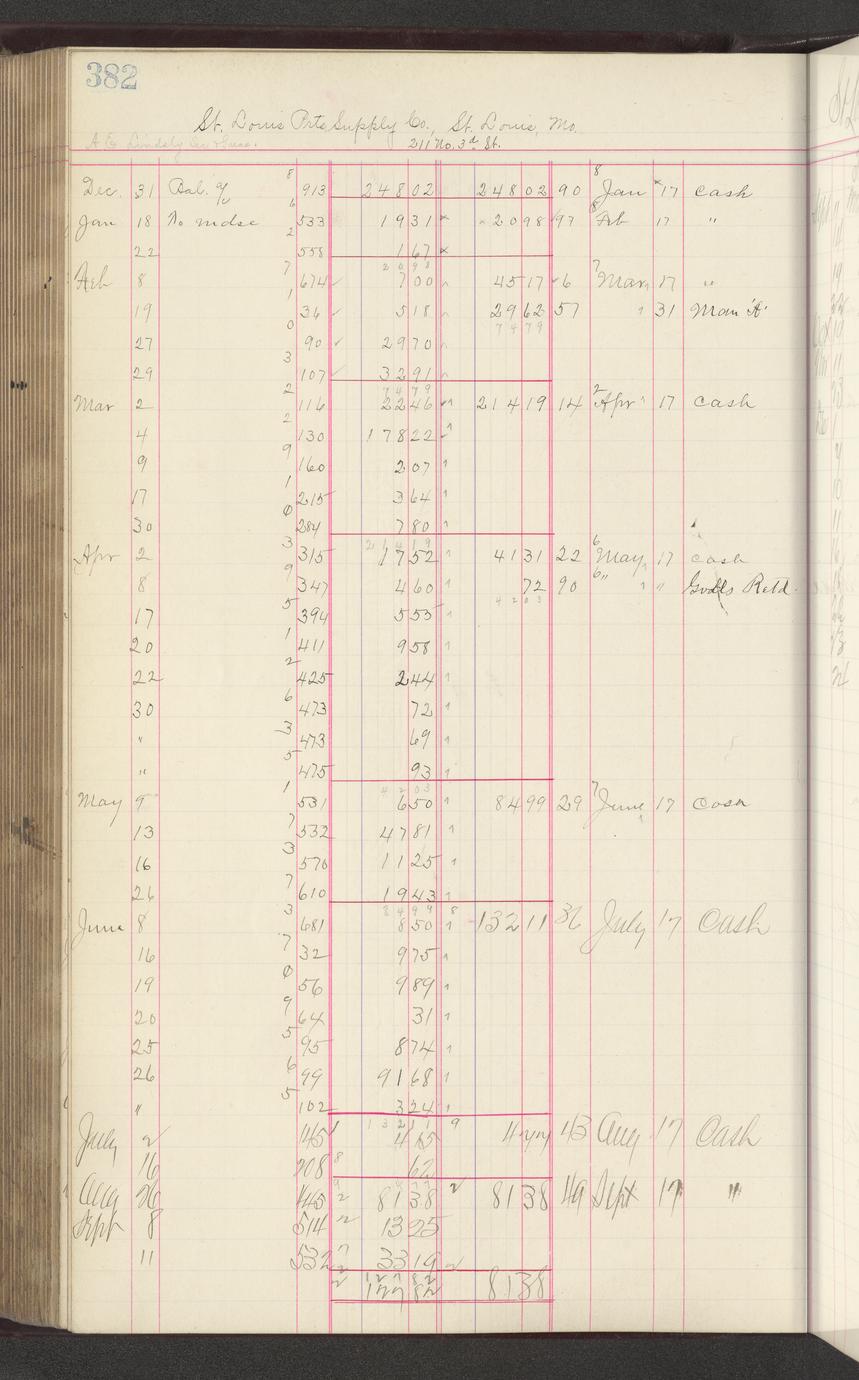 382
St. Louis Pts Supply Co., St. Louis, Mo.
211 No. 3d St.
Dec. 31 Bal. 8 913 24802 24802 90 8 Jan 17 cash
Jan 18 To mdse 6 533 1931 2098 97 8 Feb 17 "
22 2 558 167
2098
Feb 8 7 674 700 4517 6 7 Mar 17 "
19 1 36 518 2962 57 " 31 Man 'A'
7479
27 0 90 2970
29 3 107 3291
7479
Mar 2 2 116 2246 21419 14 2 Apr 17 cash
4 2 130 17822
9 9 160 207
17 1 215 364
30 0 284 780
21419
Apr 2 3 315 1752 4131 22 6 May 17 cash
8 9 347 460 72 90 6 " " Goods Retd.
4203
17 5 394 555
20 1 411 958
22 2 425 244
30 6 473 72
" 3 473 69
" 5 475 93
4203
May 9 1 531 650 8499 29 7 June 17 Cash
13 7 532 4781
16 3 570 1125
26 7 610 1943
8499 8
June 8 3 681 850 13211 36 July 17 Cash
16 7 32 975
19 0 56 989
20 9 64 31
25 5 95 874
26 6 99 9168
" 5 102 324
13211 9
July 2 145 415 477 43 Aug 17 Cash
16 208 62
Aug 26 145 8138 8138 49 Sept 17 "
Sept 8 514 1325
11 532 3319
12782
12782 8138